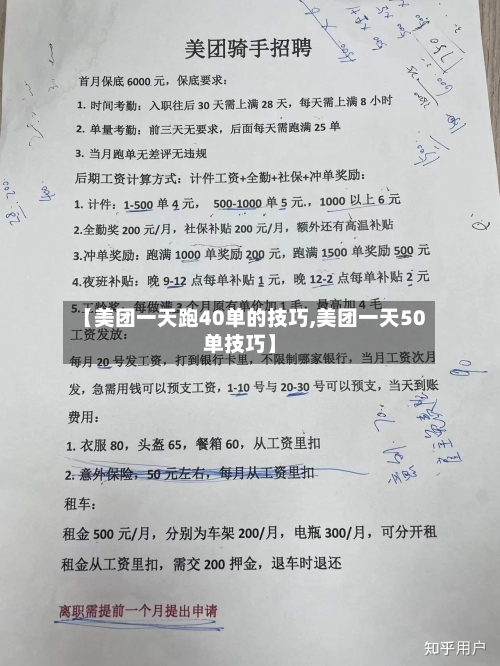 美团骑手招聘
首月保底 6000 元，保底要求：
1. 时间考勤：入职往后 30 天需上满 28 天，每天需上满 8 小时
2. 单量考勤：前三天无要求，后面每天需跑满 25 单
3. 当月跑单无差评无违规
后期工资计算方式：计件工资+全勤+社保+冲单奖励：
1. 计件：1-500 单 4 元， 500-1000 单 5 元.，1000 以上 6 元
2.全勤奖 200 元/月，社保补贴 200 元/月，额外还有高温补贴
3.冲单奖励：跑满 1000 单奖励 200 元，跑满 1500 单奖励 500 元
4.夜班补贴：晚 9-12 点每单补贴 1 元，晚 12-2 点每单补贴 2 元
5.工龄奖：每做满 3 个月原有单价加 1 毛，最高加 4 毛
【美团一天跑40单的技巧,美团一天50
单技巧】
工资发放：
每月 20 号发工资，打到银行卡里，不限制哪家银行，当月工资次月
发，急需用钱可以预支工资，1-10 号与 20-30 号可以预支，当天到账
费用：
1. 衣服 80，头盔 65，餐箱 60，从工资里扣
2. 意外保险，50 元左右，每月从工资里扣
租车：
租金 500 元/月，分别为车架 200/月，电瓶 300/月，可分开租
租金从工资里扣，需交 200 押金，退车时退还
离职需提前一个月提出申请
知乎用户